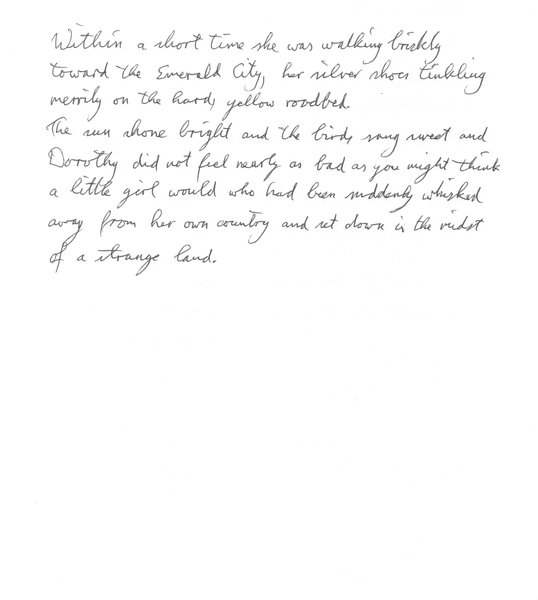 Within a short time she was walking briskly
toward the Emerald City, her silver shoes tinkling
merrily on the hard, yellow roadbed.
The sun shone bright and the birds sang sweet and
Dorothy did not feel nearly as bad as you might think
a little girl would who had been suddenly whisked
away from her own country and set down in the midst
of a strange land.